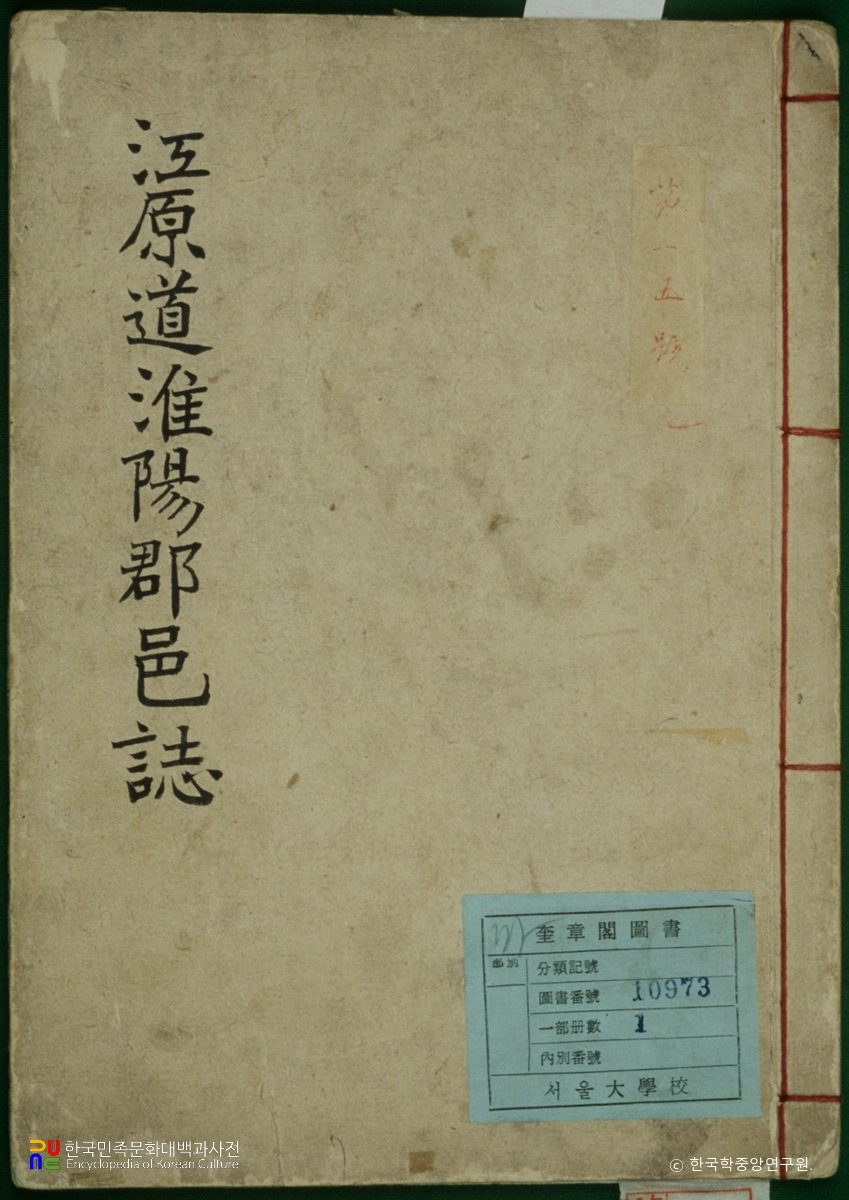 江原道淮陽郡邑誌
第一五號
奎章閣圖書
部別
分類記號
圖書番號 10973
一部册數 1
內別番號
서울大學校
한국민족문화대백과사전
Encyclopedia of Korean Culture
© 한국학중앙연구원.